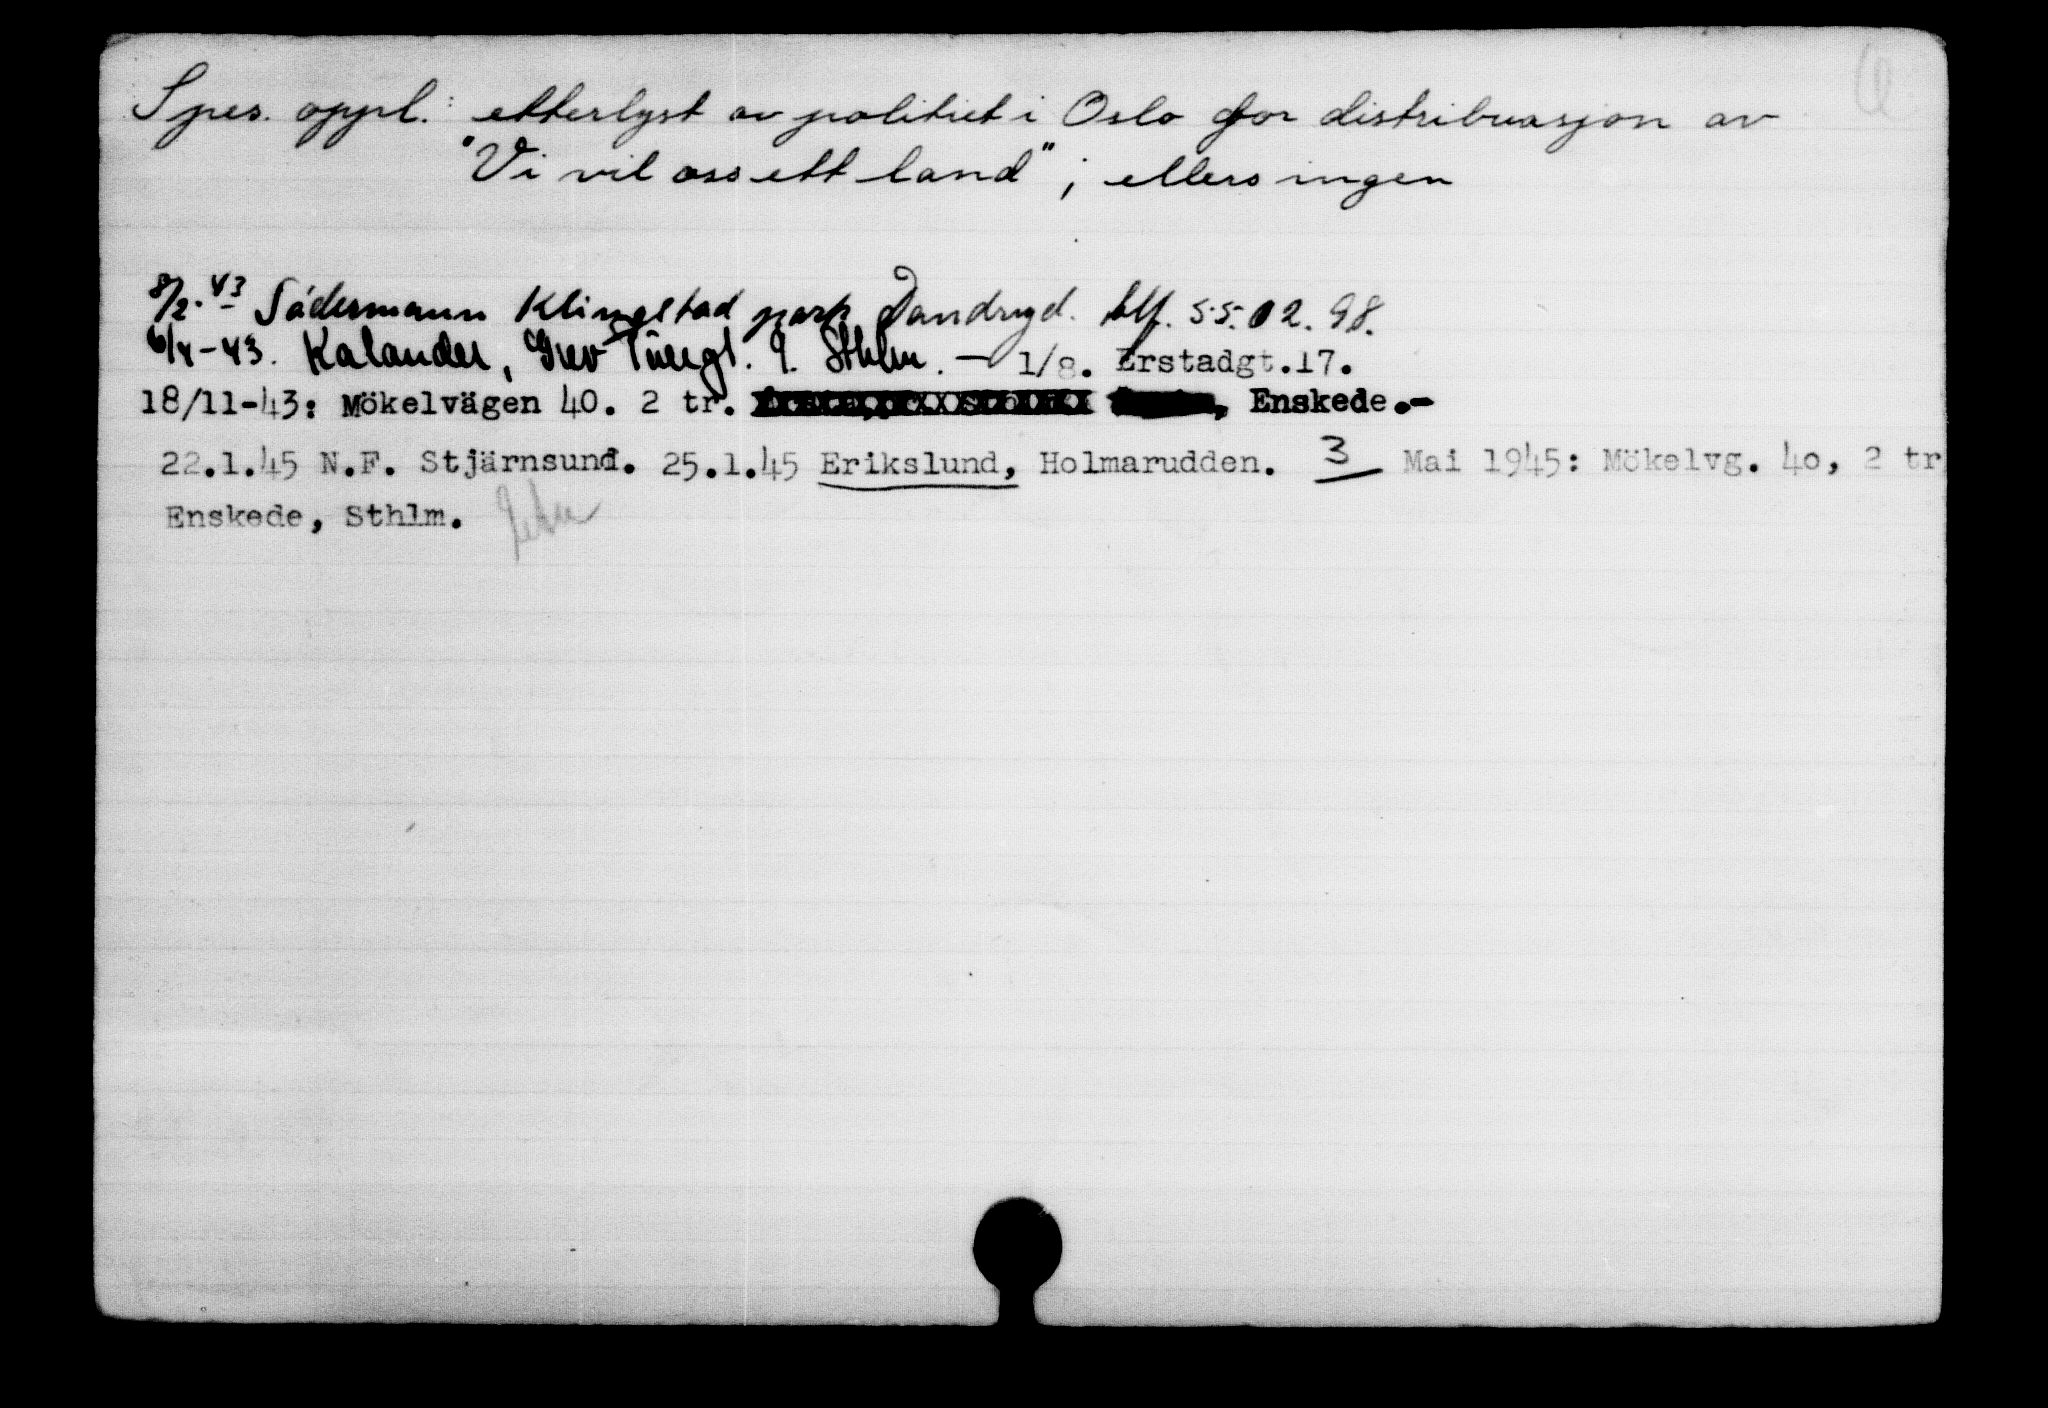 Spes. oppl.: etterlyst av politiet i Oslo for distribuasjon av
"Vi vil oss ett land"; ellers ingen
8/2. 43 Södermann Klingstad park Dandryd. tlf. 55.02.98.
6/4-43. Kalander, Grev Turegt. 9. Sthlm. — 1/8. Erstadgt.17.
18/11-43: Mökelvägen 40. 2 tr. Enskede.-
22.1.45 N.F. Stjärnsund. 25.1.45 Erikslund, Holmarudden. 3 Mai 1945: Mökelvg. 40, 2 tr
Enskede, Sthlm.